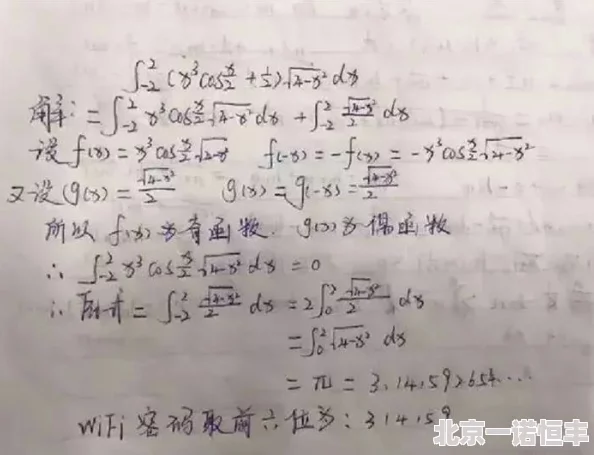 ∫₋₂² (x³cos x/2 + 1/2)√(4-x²) dx
解: = ∫₋₂² x³cos x/2 √(4-x²) dx + ∫₋₂² √(4-x²)/2 dx
设 f(x) = x³cos x/2 √(4-x²)  f(-x) = -f(x) = -x³cos x/2 √(4-x²)
又设 g(x) = √(4-x²)/2  g(x) = g(-x) = √(4-x²)/2
所以 f(x) 为奇函数. g(x) 为偶函数
∴ ∫₋₂² x³cos x/2 √(4-x²) dx = 0
∴ 原式 = ∫₋₂² √(4-x²)/2 dx = 2∫₀² √(4-x²)/2 dx
= ∫₀² √(4-x²) dx
= π = 3.141592654...
WiFi 密码取前六位为: 314159
北京一诺恒丰